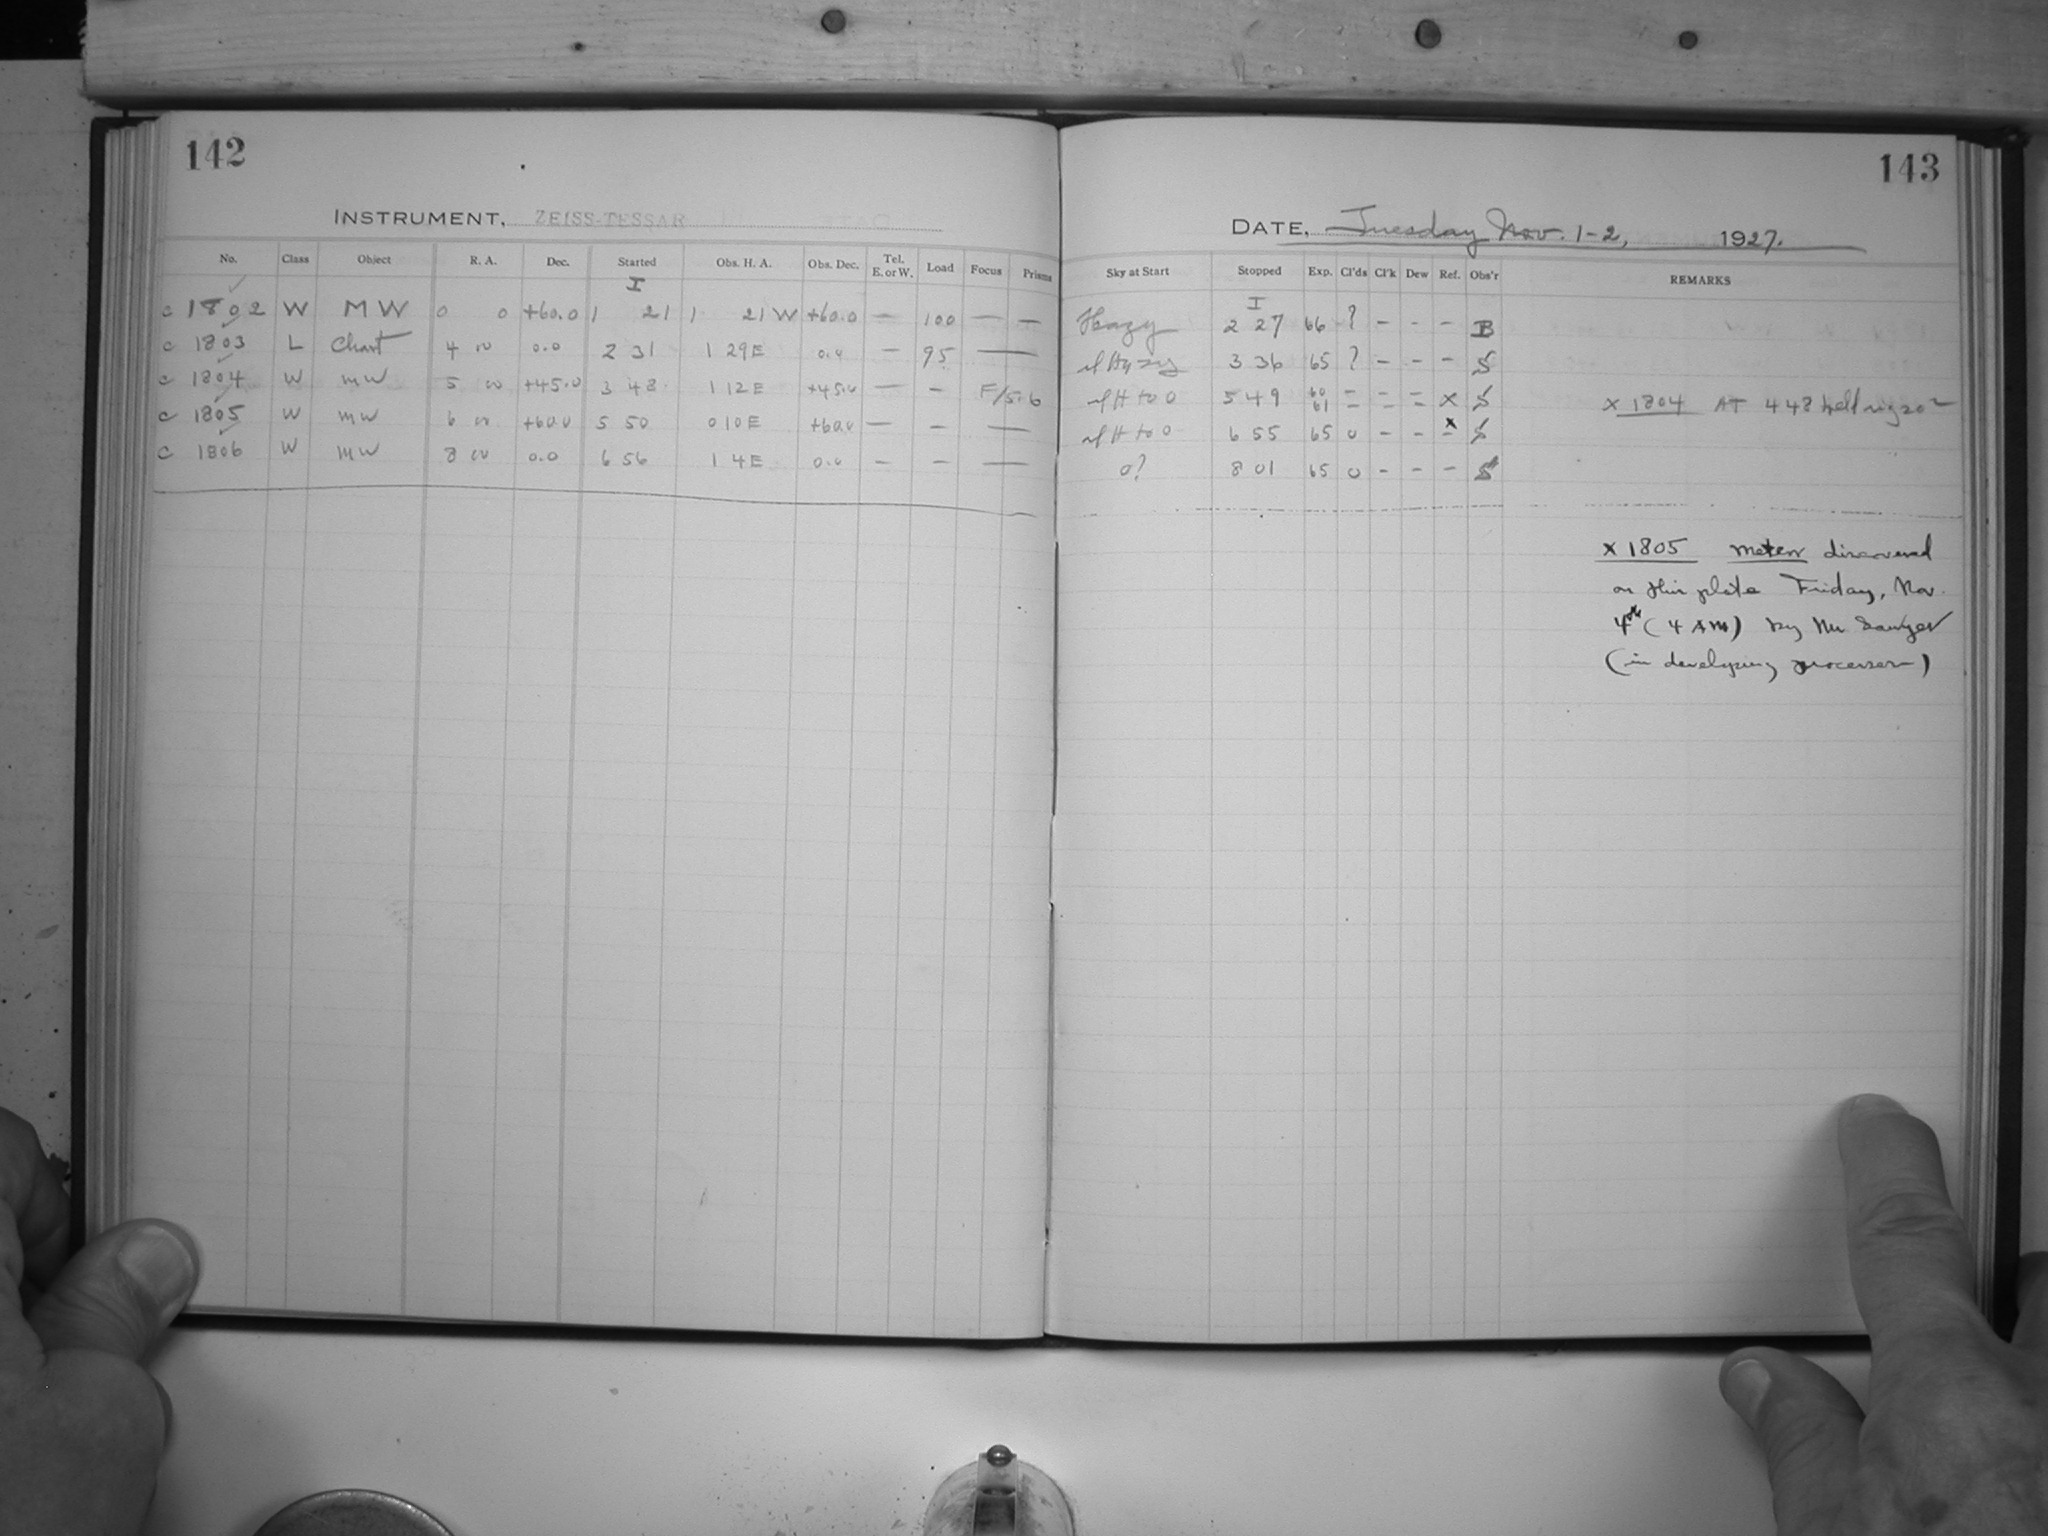 142
INSTRUMENT, ZEISS-TESSAR
No. Class Object R. A. Dec. Started Obs. H. A. Obs. Dec. Tel. E. or W. Load Focus Prisms
I
c 1802 W MW 0 0 +60.0 1 21 1 21 W +60.0 — 100 — —
c 1803 L Chart 4 00 0.0 2 31 1 29 E 0.0 — 95 —
c 1804 W MW 5 00 +45.0 3 48 1 12 E +45.0 — — F/5.6
c 1805 W MW 6 00 +60.0 5 50 0 10 E +60.0 — — —
c 1806 W MW 8 00 0.0 6 56 1 4 E 0.0 — — —
143
DATE, Tuesday Nov. 1-2, 1927.
Sky at Start Stopped Exp. Cl'ds Cl'k Dew Ref. Obs'r REMARKS
I
Hazy 2 27 66 ? - - - B
Hazy 3 36 65 ? - - - S
H to 0 5 49 60 61 - - - x S x 1804 AT 448 held
H to 0 6 55 65 0 - - - x S
0? 8 01 65 0 - - - S
x 1805 meteor discovered
on this plate Friday, Nov.
4th (4 AM) by Mr Sawyer
(in developing processes)